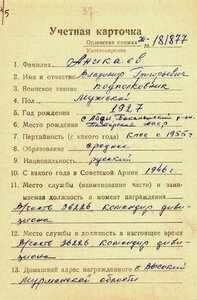 37
Учетная карточка
Орденская книжка
Удостоверение
№ 181877
1. Фамилия Аникаев
2. Имя и отчество Владимир Григорьевич
3. Воинское звание подполковник
4. Пол Мужской
5. Год рождения 1927
6. Место рождения
7. Партийность (с какого года) КПСС с 1955 г
8. Образование среднее
9. Национальность русский
10. С какого года в Советской Армии 1946 г.
11. Место службы (наименование части) и зани-
маемая должность в момент награждения
36226 командир диви-
зиона
12. Место службы и должность в настоящее время
36226 командир диви-
зиона
13. Домашний адрес награжденного п. Высокий
Мурманской области